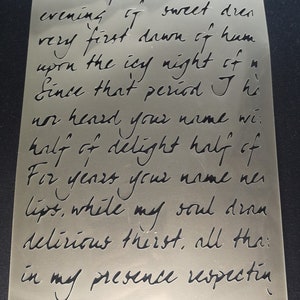 evening of sweet drea
very first dawn of hum
upon the icy night of m
Since that period I ha
nor heard your name wi
half of delight half of
For years your name ne
lips, while my soul dran
delirious thirst, all tha
in my presence respectin